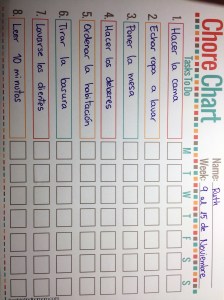 Chore Chart
Name: Ruth
Week: 9 al 15 de Noviembre
Tasks To Do M T W T F S S
1. Hacer la cama
2. Echar ropa a lavar
3. Poner la mesa
4. Hacer los deberes
5. Ordenar la habitación
6. Tirar la basura
7. Lavarse los dientes
8. Leer 10 minutos